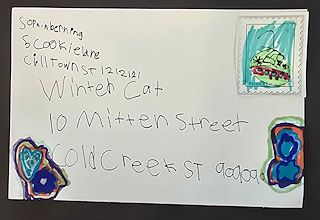 Sophinberning
5 cookielane
Chilltown ST 1212121
Winter Cat
10 Mitten Street
Cold Creek ST 909090